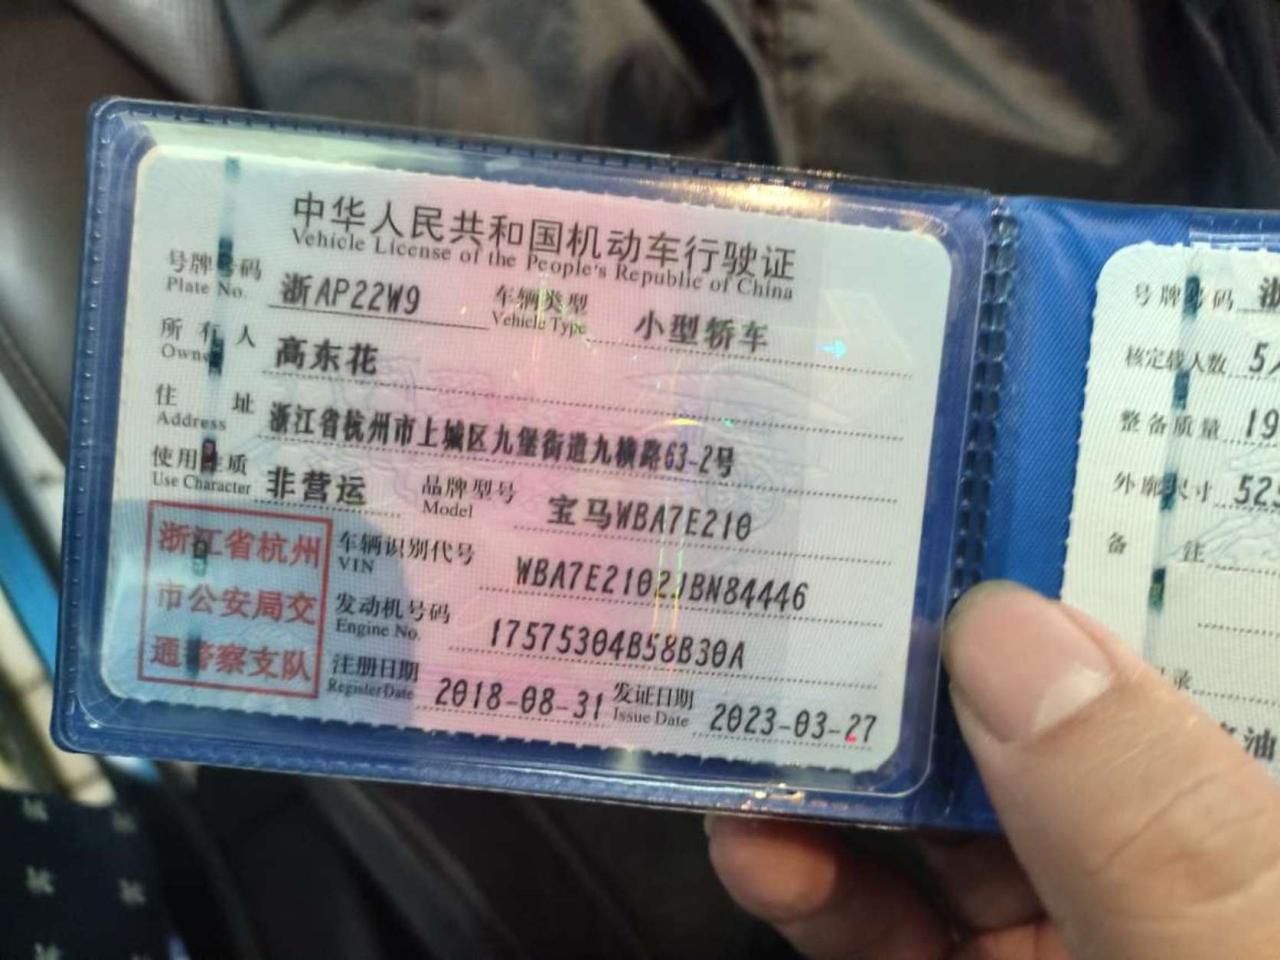 中华人民共和国机动车行驶证
Vehicle License of the People's Republic of China
号牌号码 浙AP22W9 车辆类型 小型轿车
Plate No. Vehicle Type
所有人 高东花
Owner
住址 浙江省杭州市上城区九堡街道九横路63-2号
Address
使用性质 非营运 品牌型号 宝马WBA7E210
Use Character Model
浙江省杭州
市公安局交
通警察支队
车辆识别代号 WBA7E2102JBN84446
VIN
发动机号码 17575304B58B30A
Engine No.
注册日期 2018-08-31 发证日期 2023-03-27
Register Date Issue Date
号牌号码 浙
核定载人数 5人
整备质量 19
外廓尺寸 52
备注
录
油